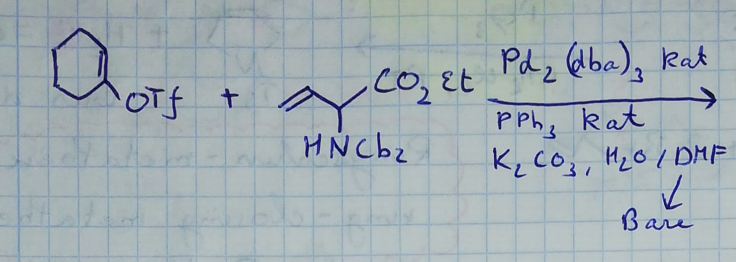 OTf
+
CO₂Et
HNCbz
Pd₂(dba)₃ kat
PPh₃ kat
K₂CO₃, H₂O / DMF
Bare